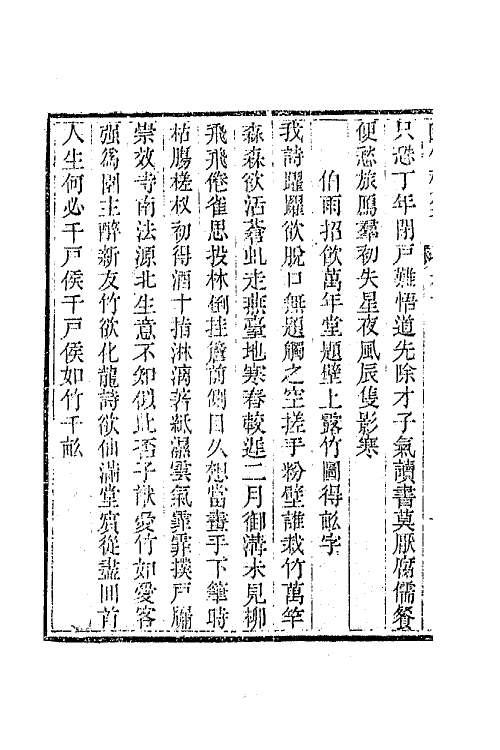 只恐丁年閉戶難悟道先除才子氣讀書莫厭腐儒餐
便愁旅鴈羣初失星夜風辰隻影寒
伯雨招飲萬年堂題壁上露竹圖得畝字
我詩躍躍欲脫口無題觸之空搓手粉壁誰栽竹萬竿
森森欲活蒼虬走燕臺地寒春較遲二月御溝未見柳
飛飛倦雀思投林倒挂簷前側目久想當畫手下筆時
枯腸槎枒初得酒十指淋漓著紙濕雲氣霏霏撲戶牖
崇效寺南法源北生意不知似此否子猷愛竹如愛客
强為園主醉新友竹欲化龍詩欲仙滿堂賓從盡回首
人生何必千戶侯千戶侯如竹千畝